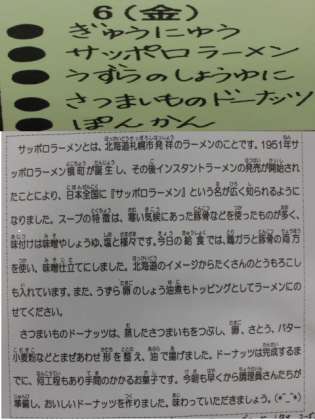 6(金)
●ぎゅうにゅう
●サッポロラーメン
●うずらのしょうゆに
●さつまいものドーナッツ
●ぽんかん
サッポロラーメンとは、北海道札幌市発祥のラーメンのことです。1951年サ
ッポロラーメン横町が誕生し、その後インスタントラーメンの発売が開始され
たことにより、日本全国に『サッポロラーメン』という名が広く知られるように
なりました。スープの特徴は、寒い気候にあった豚骨などを使ったものが多く、
味付けは味噌やしょうゆ、塩と様々です。今日の給食では、鶏ガラと豚骨の両方
を使い、味噌仕立てにしました。北海道のイメージからたくさんのとうもろこし
も入れています。また、うずら卵のしょう油煮もトッピングとしてラーメンにの
せてください。
さつまいものドーナッツは、蒸したさつまいもをつぶし、卵、さとう、バター
小麦粉などとまぜあわせ形を整え、油で揚げました。ドーナッツは完成するま
でに、何工程もあり手間のかかるお菓子です。今朝も早くから調理員さんたちが
準備し、おいしいドーナッツを作りました。味わっていただきましょう。(*^_^*)